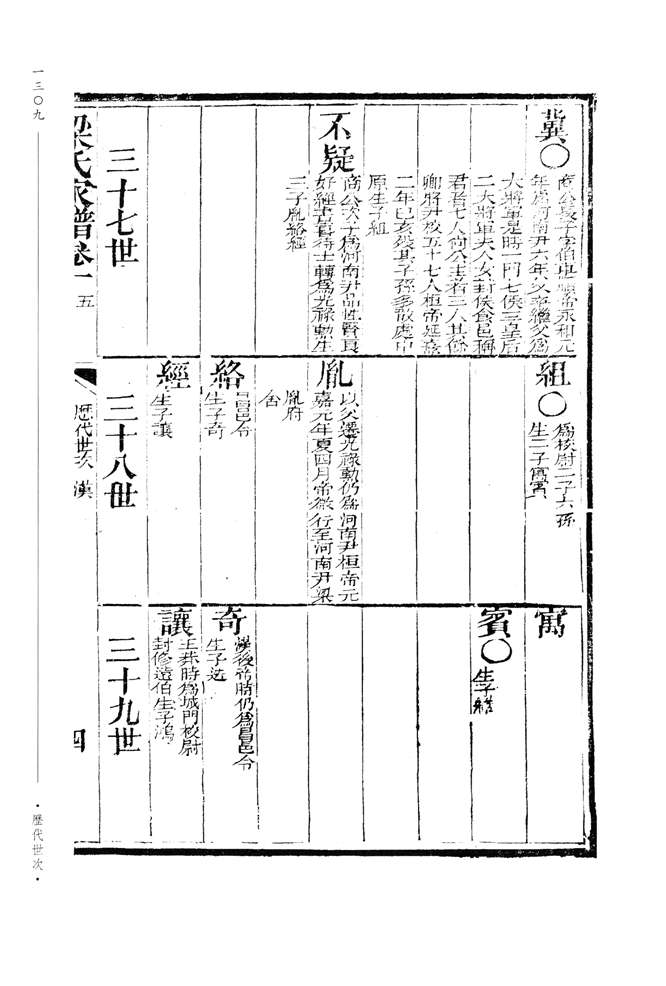 冀〇
商公長子字伯卓順帝永和元
年爲河南尹六年父卒繼父爲
大將軍是時一門七侯三皇后
二大將軍夫人女封侯食邑稱
君者七人尚公主者三人其餘
卿將尹校五十七人桓帝延熹
二年已亥歿其子孫多散處中
原生子組
不疑
商公次子爲河南尹品性賢良
好經書善待士轉爲光祿勳生
三子胤絡經
三十七世
組〇
爲校尉二子六孫
生二子寓賓
胤
以父遷光祿勳仍爲河南尹桓帝元
嘉元年夏四月帝微行至河南尹梁
胤府
舍
絡
昌邑令
生子奇
經
生子讓
三十八世
寓
賓〇
生子
奇
漢後帝時仍爲昌邑令
生子选
讓
王莽時爲城門校尉
封修遠伯生子鴻
三十九世
梁氏家譜卷一
五
歷代世次
漢
四
一三〇九
·歷代世次·